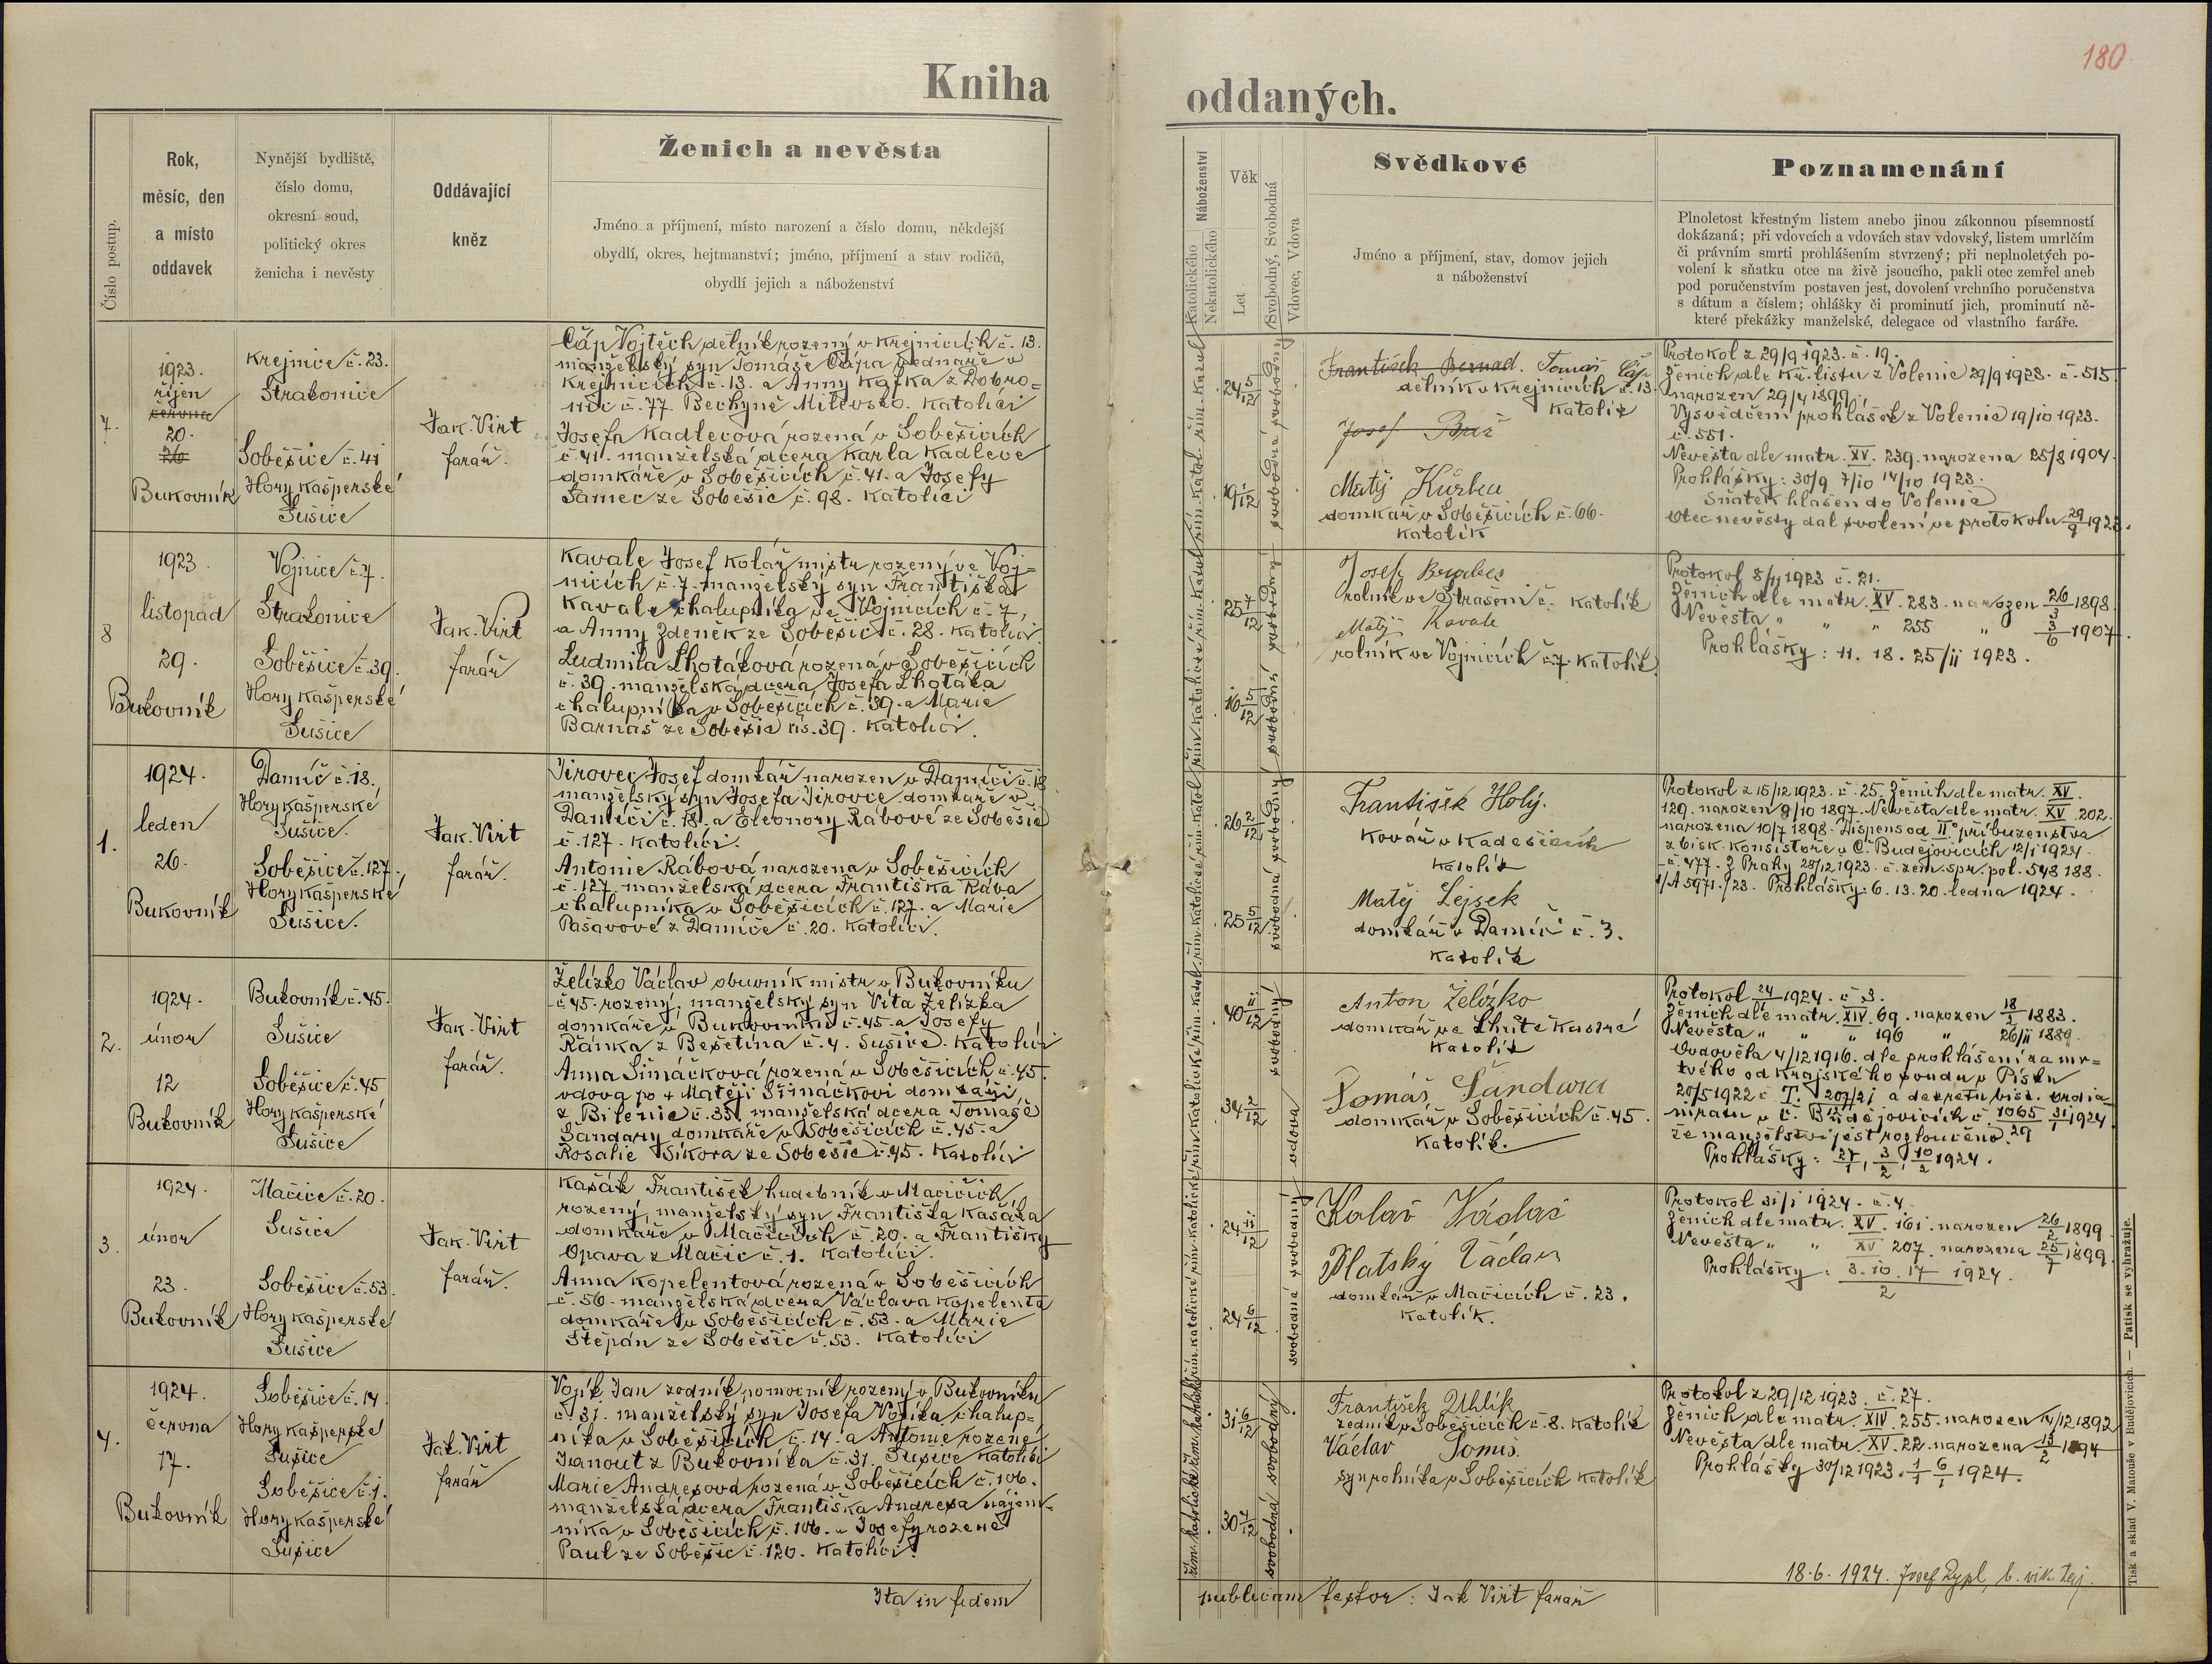 180
Kniha oddaných.
Číslo postup.
Rok,
měsíc, den
a místo
oddavek
Nynější bydliště,
číslo domu,
okresní soud,
politický okres
ženicha i nevěsty
Oddávající
kněz
Ženich a nevěsta
Jméno a příjmení, místo narození a číslo domu, někdejší
obydlí, okres, hejtmanství; jméno, příjmení a stav rodičů,
obydlí jejich a náboženství
Náboženství
Katolického
Nekatolického
Věk
Let
Svobodný, Svobodná
Vdovec, Vdova
Svědkové
Jméno a příjmení, stav, domov jejich
a náboženství
Poznamenání
Plnoletost křestným listem anebo jinou zákonnou písemností
dokázaná; při vdovcích a vdovách stav vdovský, listem umrlčím
či právním smrti prohlášením stvrzený; při neplnoletých po-
volení k sňatku otce na živě jsoucího, pakli otec zemřel aneb
pod poručenstvím postaven jest, dovolení vrchního poručenstva
s dátum a číslem; ohlášky či prominutí jich, prominutí ně-
které překážky manželské, delegace od vlastního faráře.
7.
1923.
říjen
června
20.
26
Bukovník
Krejnice č. 23.
Strakonice
Soběšice č. 41
Hory Kašperské
Sušice
Jak. Virt
farář.
Čáp Vojtěch dělník rozený v Krejnicích č. 13.
manželský syn Tomáše Čápa sednaře v
Krejnicích č. 13. a Anny Kafka z Dobro=
nic č. 77. Bechyně Milevsko. Katolíci
Josefa Kadlecová rozená v Soběšicích
č. 41. manželská dcera Karla Kadlece
domkáře v Soběšicích č. 41. a Josefy
Samec ze Soběšic č. 98. Katolíci
24 5/12
19 1/12
svobodný
svobodná
František Bernad. Tomáš Čáp
dělník v Krejnicích č. 13.
Katolík
Josef
Matěj Kůrka
domkář v Soběšicích č. 66.
Katolík
Protokol z 29/9 1923. č. 19.
Ženich dle kř. listu z Volenic 29/9 1923. č. 515.
narozen 29/4 1899.
Vysvědčení prohlášek z Volenic 19/10 1923.
č. 551.
Nevěsta dle matr. XV. 239. narozena 25/8 1904.
Prohlášky: 30/9 7/10 14/10 1923.
Sňatek hlášen do Volenic
Otec nevěsty dal svolení ve protokolu 29/9 1923.
8
1923.
listopad
29.
Bukovník
Vojnice č. 7.
Strakonice
Soběšice č. 39.
Hory Kašperské
Sušice
Jak. Virt
farář
Kavale Josef kolář mistr rozený ve Voj=
nicích č. 7. manželský syn Františka
Kavale chalupníka ve Vojnicích č. 7,
a Anny Zdeněk ze Soběšic č. 28. Katolíci.
Ludmila Lhotáková rozená v Soběšicích
č. 39. manželská dcera Josefa Lhotáka
chalupníka v Soběšicích č. 39. a Marie
Barnáš ze Soběšic čís. 39. Katolíci.
25 7/12
16 5/12
svobodný
svobodná
Josef
rolník ve Strašeni č. Katolík
Matěj Kavale
rolník ve Vojnicích č. 7. Katolík.
Protokol 8/11 1923 č. 21.
Ženich dle matr. XV. 283. narozen 26/3 1898.
Nevěsta " " " 255 " 3/6 1907.
Prohlášky: 11. 18. 25/11 1923.
1.
1924.
leden
26.
Bukovník
Damíč č. 18.
Hory Kašperské
Sušice.
Soběšice č. 127.
Hory Kašperské
Sušice.
Jak. Virt
farář.
Jirovec Josef domkář narozen v Damíči č. 18
manželský syn Josefa Jirovce domkáře v
Damíči č. 18. a Eleonory Rábové ze Soběšic
č. 127. Katolíci.
Antonie Rábová narozena v Soběšicích
č. 127. manželská dcera Františka Rába
chalupníka v Soběšicích č. 127. a Marie
Pašavové z Damíče č. 20. Katolíci.
26 2/12
25 5/12
svobodný
svobodná
František Holý.
Kovář v Kadešicích
Katolík
Matěj Lejsek
domkář v Damíč č. 3.
Katolík
Protokol z 15/12 1923. č. 25. Ženich dle matr. XV.
129. narozen 9/10 1897. Nevěsta dle matr. XV. 202.
narozena 10/7 1898. Dispens od II° příbuzenstva
z bisk. konsistoře v Č. Budějovicích 12/1 1924.
č. 477. Z Prahy 28/12 1923. č. zem. spr. pol. 548 188.
1/A 5971./23. Prohlášky: 6. 13. 20. ledna 1924.
2.
1924.
únor
12
Bukovník
Bukovník č. 45.
Sušice
Soběšice č. 45
Hory Kašperské
Sušice
Jak. Virt
farář.
Želízko Václav obuvník mistr v Bukovníku
č. 45. rozený, manželský syn Víta Želízka
domkáře v Bukovníku č. 45. a Josefy
Řánka z Bešetína č. 4. Sušice. Katolíci
Anna Šimáčková rozená v Soběšicích č. 45.
vdova po + Matěji Šimáčkovi domkáři
z Bilenic č. 35. manželská dcera Tomáše
Šandary domkáře v Soběšicích č. 45. a
Rosalie Sikora ze Soběšic č. 45. Katolíci
40 11/12
34 2/12
svobodný
vdova
Anton Želízko
domkář ve Lhůtě
Katolík
Tomáš Šandara
domkář v Soběšicích č. 45.
Katolík.
Protokol 24/1 1924. č. 3.
Ženich dle matr. XIV. 69. narozen 18/2 1883.
Nevěsta " " " 196 " 26/11 1889.
Ovdověla 4/12 1916. dle prohlášení za mr=
tvého od Krajského soudu v Písku
20/5 1922 č. T. 207/21 a dekretu bisk. Ordia
nirátu v Č. Budějovicích č. 1065 31/1 1924
že manželství jest rozloučeno. 29
Prohlášky: 27/1, 3/2, 10/2 1924.
3.
1924.
únor
23.
Bukovník
Mačice č. 20.
Sušice
Soběšice č. 53.
Hory Kašperské
Sušice
Jak. Virt
farář.
Kasák František hudebník v Mačicích
rozený, manželský syn Františka Kasáka
domkáře v Mačicích č. 20. a Františky
Opava z Mačic č. 1. Katolíci.
Anna Kopelentová rozená v Soběšicích
č. 56. manželská dcera Václava Kopelenta
domkáře v Soběšicích č. 53. a Marie
Štěpán ze Soběšic č. 53. Katolíci
24 11/12
24 6/12
svobodný
svobodná
Kolař Václav
Platský Václav
domkář v Mačicích č. 23.
Katolík.
Protokol 31/1 1924. č. 4.
Ženich dle matr. XV. 161. narozen 26/2 1899
Nevěsta " " XV 207. narozena 25/7 1899.
Prohlášky: 3. 10. 17/2 1924.
4.
1924.
června
17.
Bukovník
Soběšice č. 14.
Hory Kašperské
Sušice
Soběšice č. 1.
Hory Kašperské
Sušice
Jak. Virt
farář
Vojík Jan zedník pomocník rozený v Bukovníku
č. 31. manželský syn Josefa Vojíka chalup=
níka v Soběšicích č. 14. a Antonie rozené
Janout z Bukovníka č. 31. Sušice Katolíci
Marie Andresová rozená v Soběšicích č. 106.
manželská dcera Františka Andresa nájem=
níka v Soběšicích č. 106. a Josefy rozené
Paul ze Soběšic č. 120. Katolíci.
31 6/12
30 4/12
svobodný
svobodná
František Uhlík
zedník v Soběšicích č. 8. Katolík
Václav Tomes.
syn rolníka v Soběšicích Katolík
Protokol z 29/12 1923. č. 27.
Ženich dle matr. XIV. 255. narozen 14/12 1892
Nevěsta dle matr. XV. 22. narozena 13/2 1894
Prohlášky 30/12 1923. 1/1 6/1 1924.
Ita in fidem publicam testor: Jak Virt farář
18.6.1924. Josef Zypl, b. vik. taj.
Tisk a sklad V. Matouše v Budějovicích. — Patisk se vyhražuje.